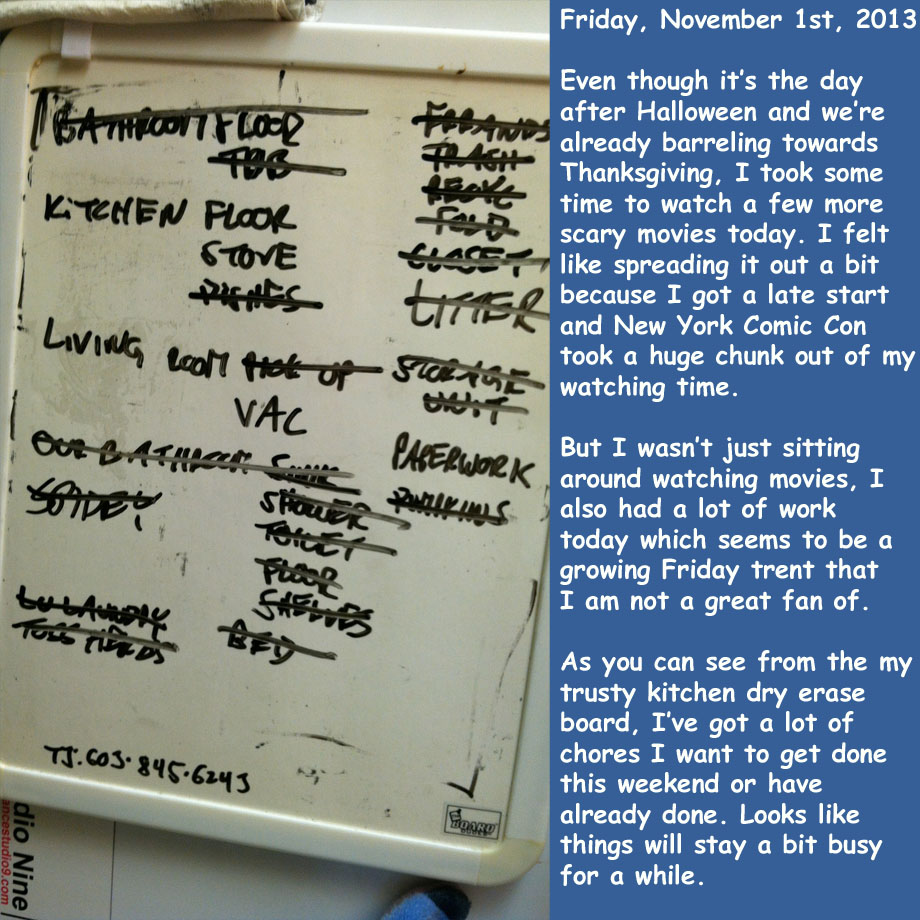 BATHROOM FLOOR
TUB
KITCHEN FLOOR
STOVE
DISHES
LIVING ROOM PICK UP
VAC
OUR BATHROOM SINK
SHOWER
TOILET
FLOOR
SHELVES
BED
LAUNDRY
ERRANDS
TRASH
RECYC
FOLD
CLOSET
LITTER
STORAGE
UNIT
PAPERWORK
PUMPKINS
BOARD
dio Nine
ancestudio9.com
Friday, November 1st, 2013
Even though it's the day
after Halloween and we're
already barreling towards
Thanksgiving, I took some
time to watch a few more
scary movies today. I felt
like spreading it out a bit
because I got a late start
and New York Comic Con
took a huge chunk out of my
watching time.
But I wasn't just sitting
around watching movies, I
also had a lot of work
today which seems to be a
growing Friday trent that
I am not a great fan of.
As you can see from the my
trusty kitchen dry erase
board, I've got a lot of
chores I want to get done
this weekend or have
already done. Looks like
things will stay a bit busy
for a while.